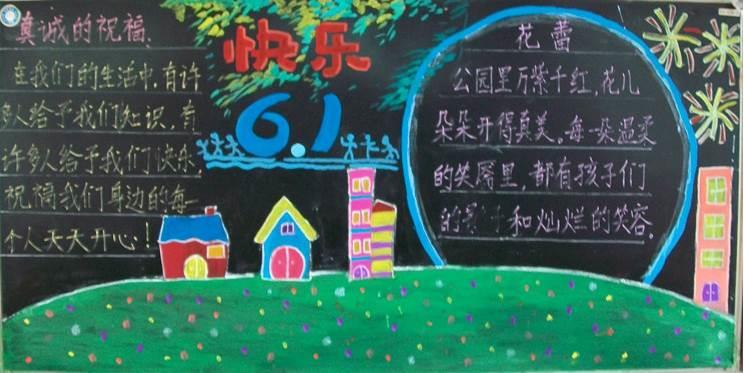 真诚的祝福、
在我们的生活中,有许
多人给予我们知识,有
许多人给予我们快乐,
祝福我们身边的每一
个人天天开心!
快乐
6.1
花蕾
公园里万紫千红,花儿
朵朵开得真美。每一朵温柔
的笑靥里,都有孩子们
的 和灿烂的笑容。